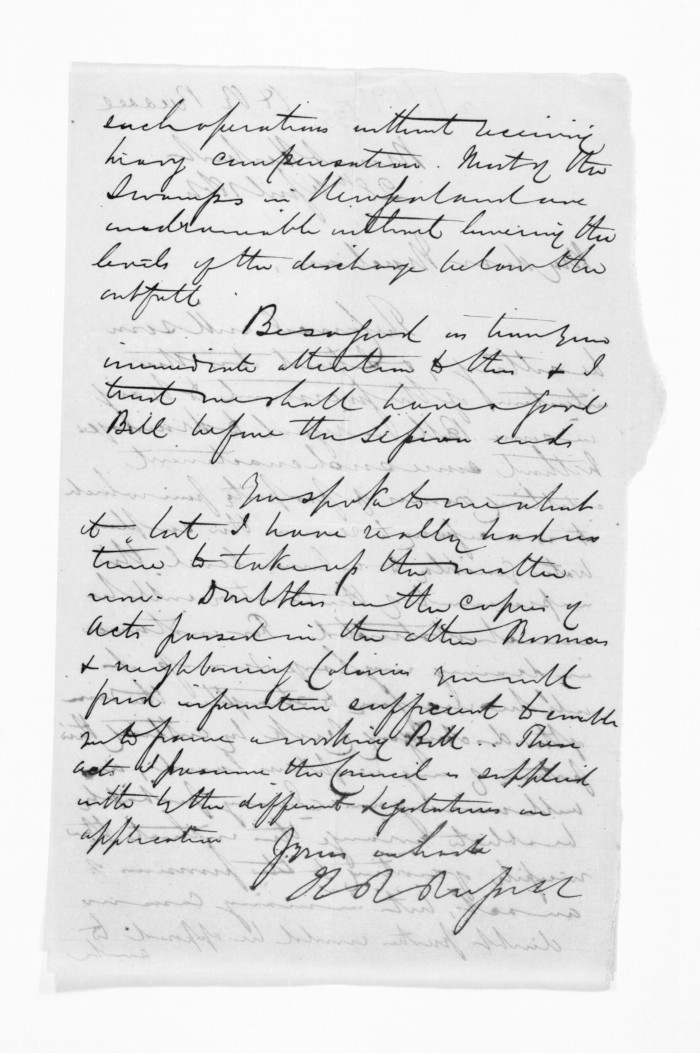 such operations without receiving
heavy compensation. Most of the
Swamps in New Zealand are
undrainable without lowering the
levels of the discharge below the
outfall
Be so good as to
immediate attention to this & I
trust we shall have a good
Bill before the Session ends
You spoke to me about
it, but I have really had no
time to take up the matter
now. Doubtless in the copies of
Acts passed in the other Provinces
& neighbouring Colonies you will
find information sufficient to enable
you to frame a working Bill. These
acts I presume the Council is supplied
with by the different Legislatures on
application
Yours in haste
H R Russell